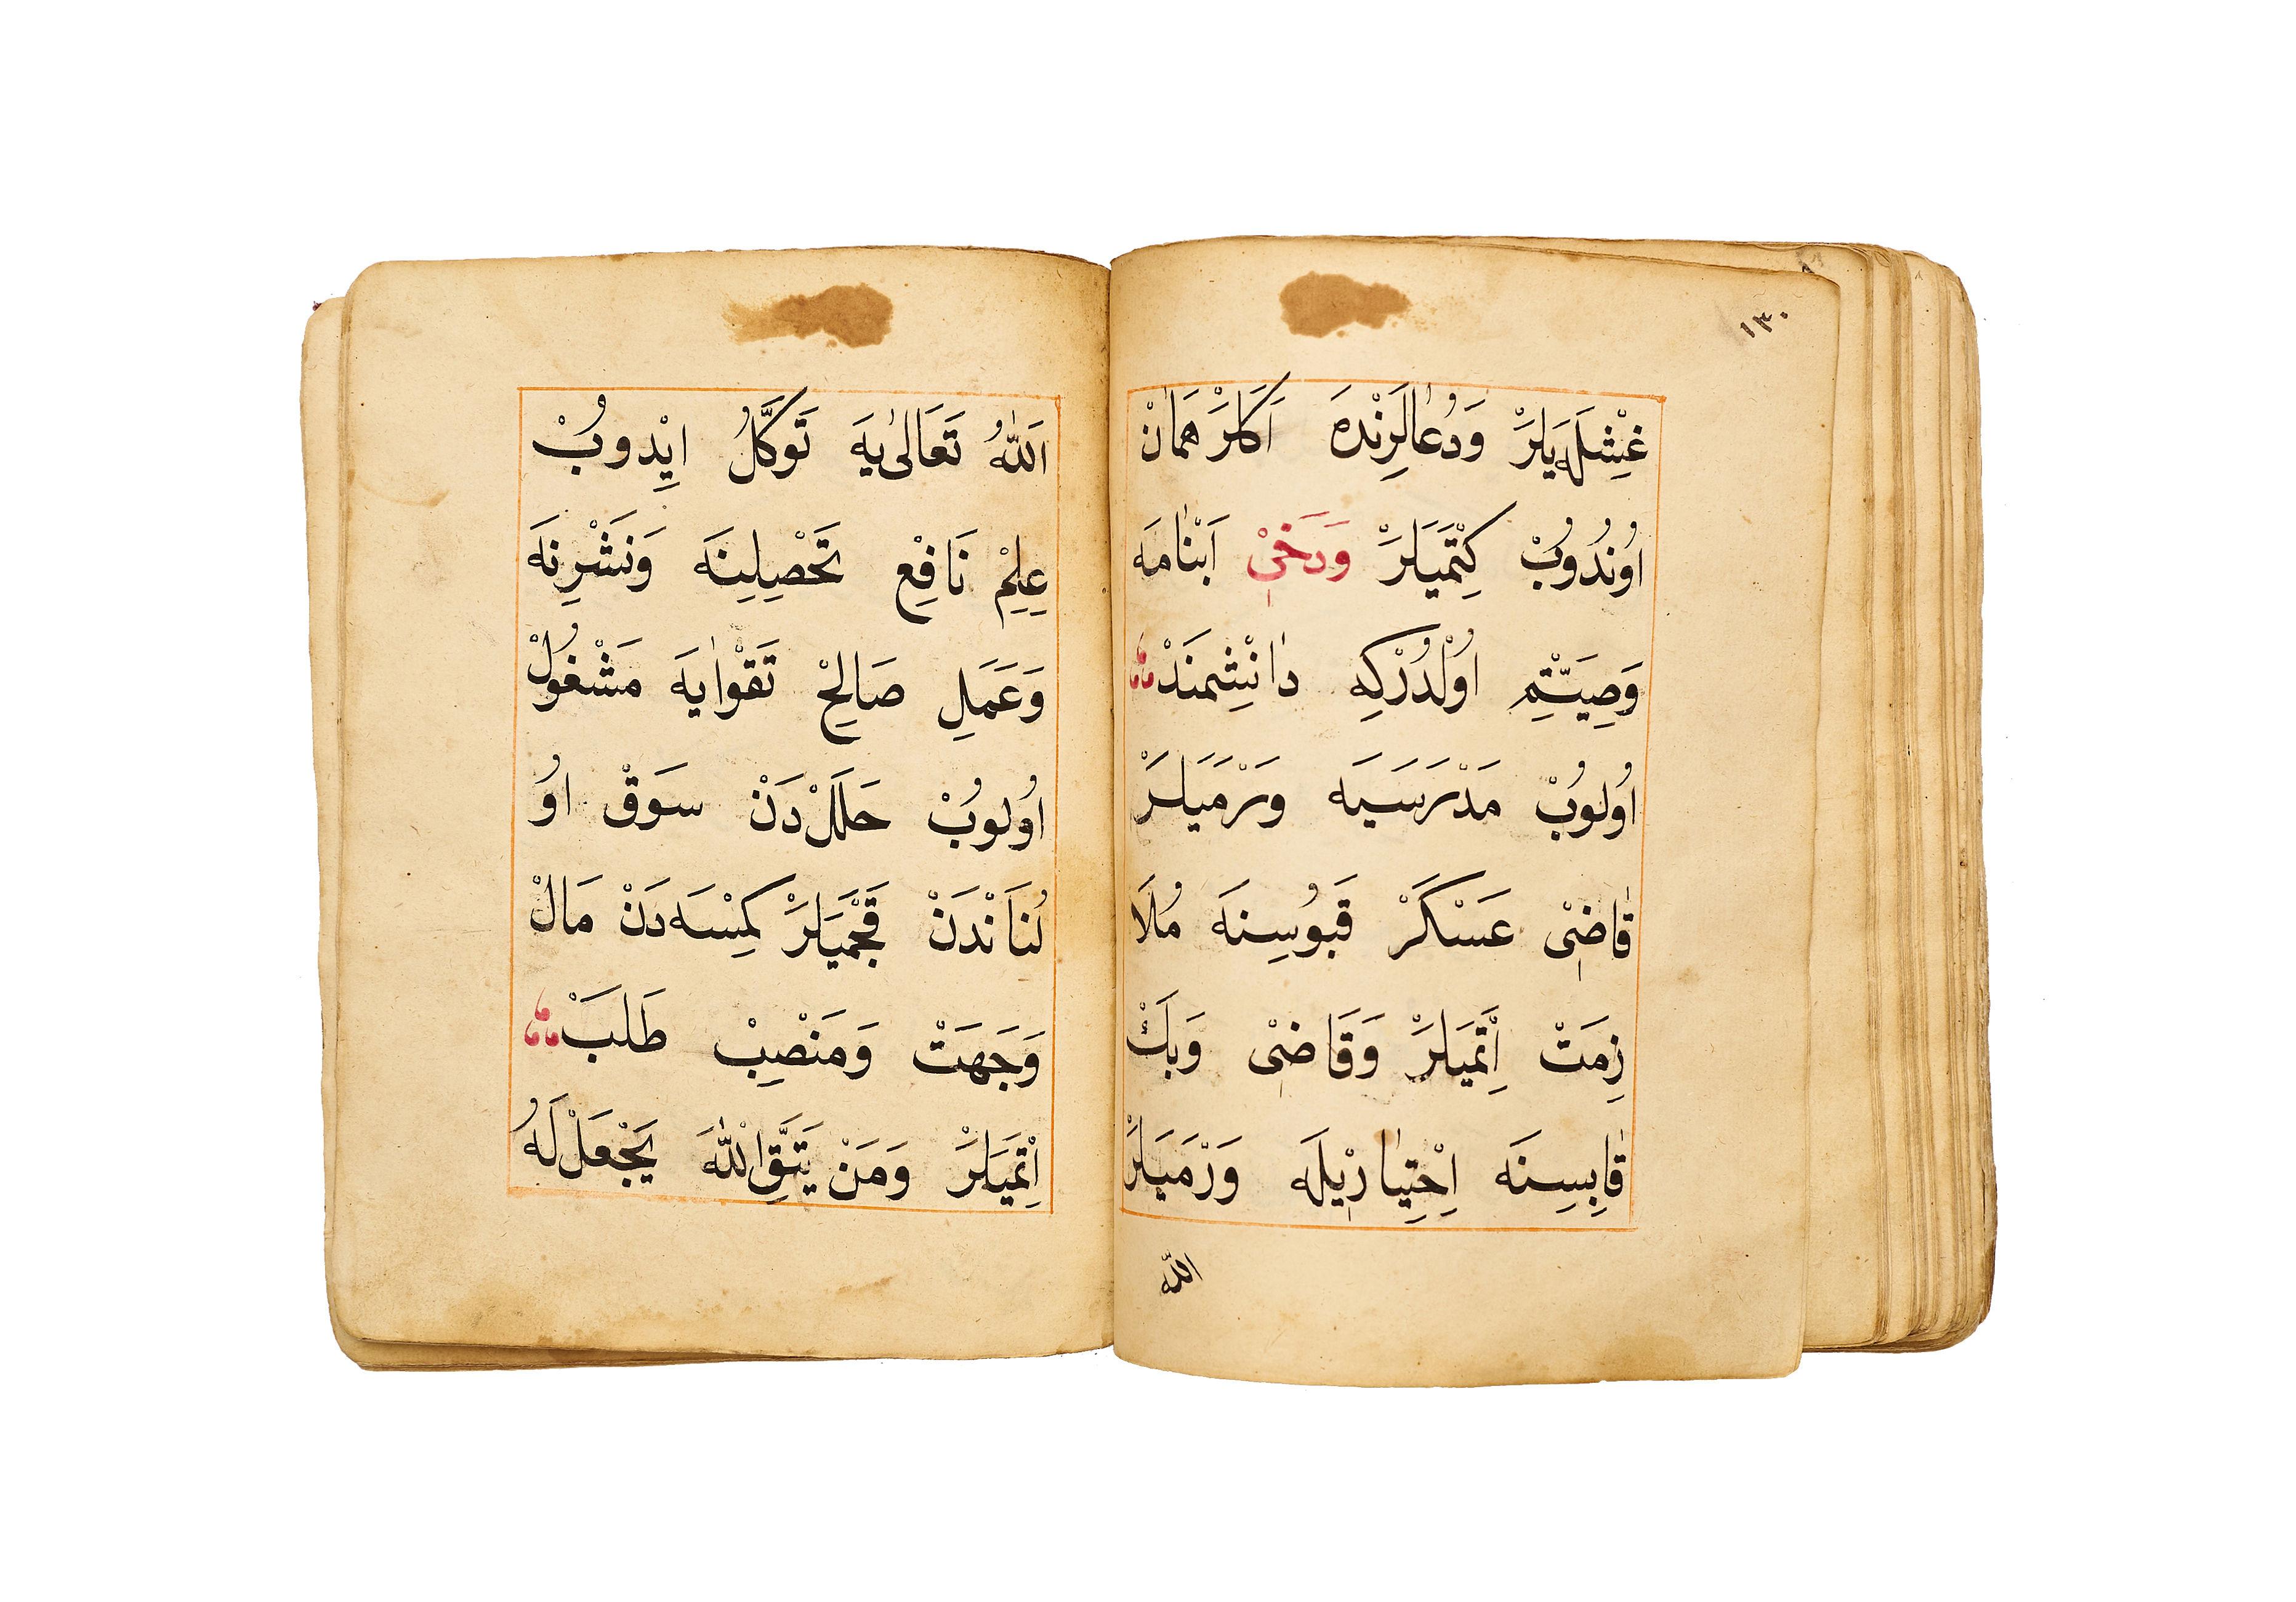 ١٣٠
غِشْلَه‌يَلَرْ وَدُعَالَرِنْدَه اَكَلَرْ هَمَانْ
اُونُدُوبْ كِتْمَيَلَرْ وَدَخِى اَبْنَامَه
وَصِيَّتِمِ اُولْدُرْكِه دَانِشْمَنْدْ
اُولُوبْ مَدْرَسَيَه وَرْمَيَلَرْ
قَاضِى عَسْكَرْ قَبُوسِنَه مُلَا
زِمَتْ اِتْمَيَلَرْ وَقَاضِى وَبَكْ
قَابِسِنَه اِخْتِيَارْيلَه وَرْمَيَلَرْ
اللّٰه
اَللّٰهُ تَعَالٰى‌يَه تَوَكَّلُ ايْدِوُبْ
عِلْمِ نَافِعْ تَحْصِيلِنَه وَنَشْرِنَه
وَعَمَلِ صَالِحْ تَقْوَايَه مَشْغُولْ
اُولوُبْ حَلَلْ‌دَنْ سَوَقْ اوُ
لُنَانْدَنْ قَچْمَيَلَرْ كِمْسَه‌دَنْ مَالْ
وَجَهَتْ وَمَنْصِبْ طَلَبْ
اِتْمَيَلَرْ وَمَنْ يَتَّقِ اللّٰهَ يَجْعَلْ لَهُ